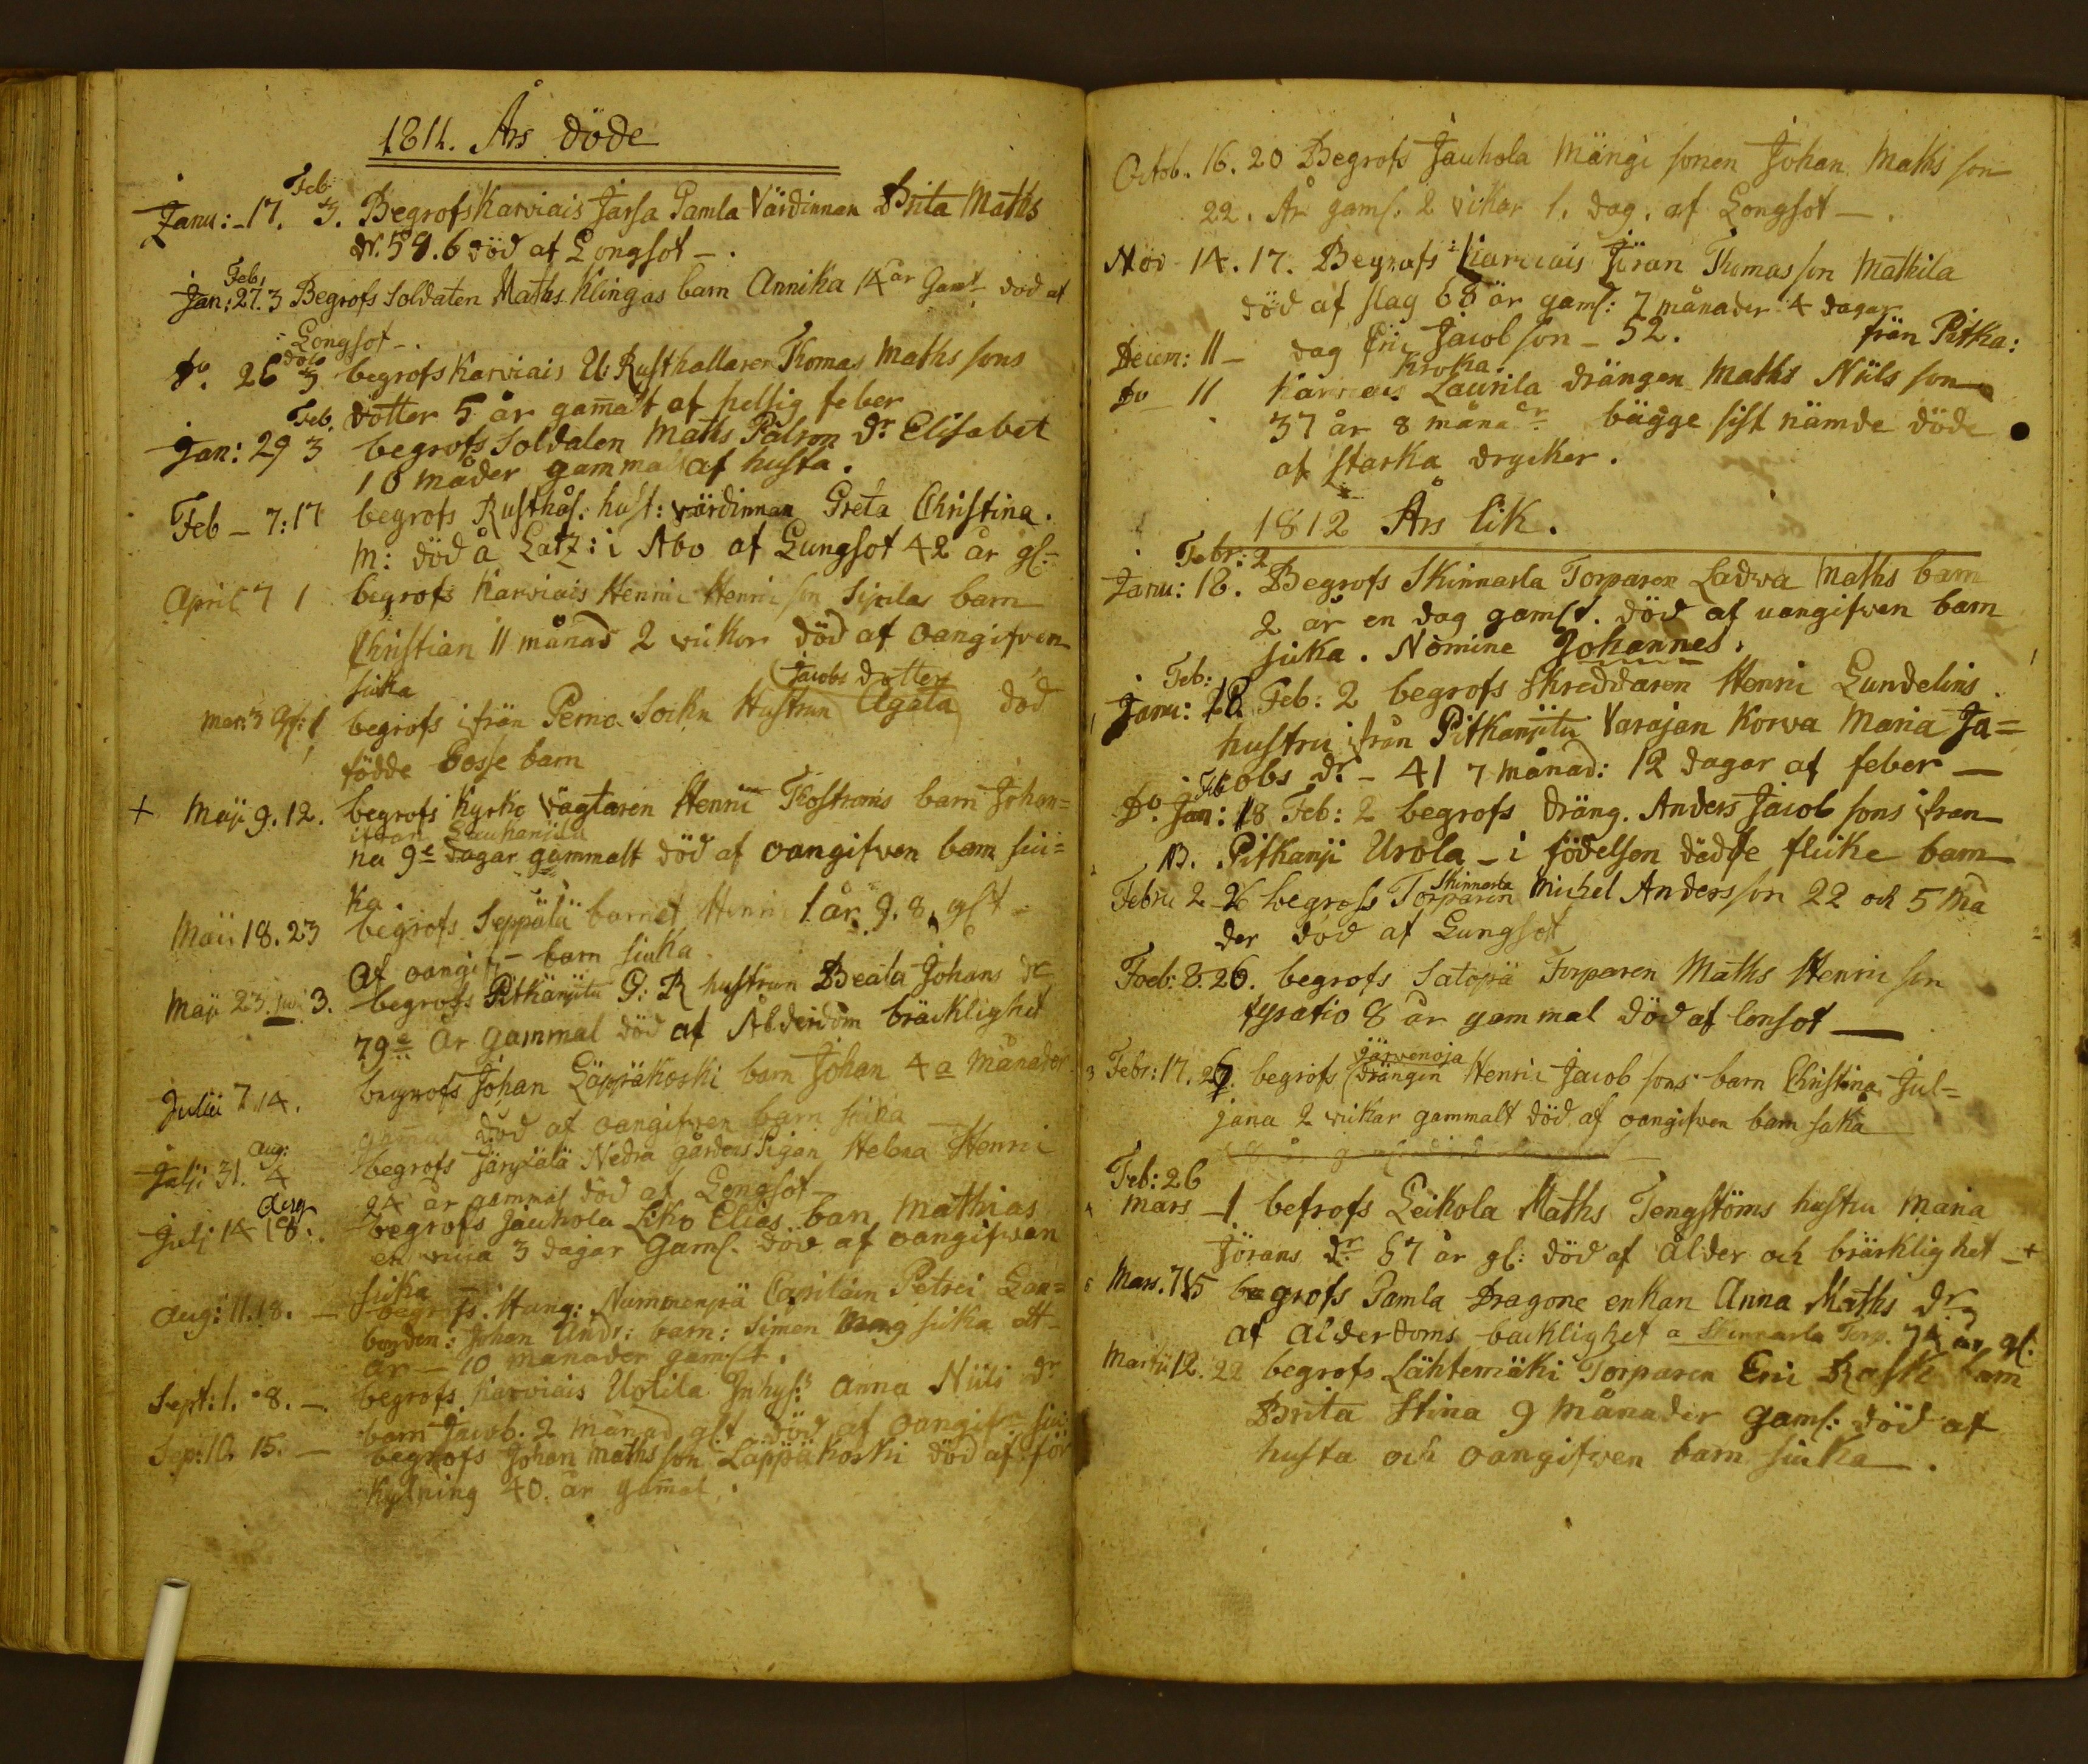 1811. Års döde
Feb
Janu: 17. 3. Begrofs Karviais Jarsa Gamla Värdinnan Brita Maths
dr. 59. 6 död af Longsot -.
Feb:
Jan: 27. 3 Begrofs Soldaten Maths Klingas barn Annika 14 år Gamt död af
Longsot -.
do
Do. 26 3 begrofs Karviais U: Rusthallaren Thomas Maths sons
dotter 5 år gamalt af hetsig feber
Feb.
Jan: 29 3 begrofs Soldaten Maths Palson dr Elisabet
10 måder gammal af husta.
Feb - 7: 17 begrofs Rusthål. hust: värdinnan Greta Christina.
M: död å Latz: i Abo af Lungsot 42 år gl:
April 7 1 begrofs Karviais Henric Henric son Sipilas barn
Christian 11 månad 2 vickor död af oangifven
siuka
Jacobs dotter
mar: 3 Ap: 1 begrofs ifrån Perno Sockn Hustrun Agata död
födde Gosse barn
+ Maji 9. 12. begrofs Kyrko Vagtaren Henric Fostroms barn Johan=
ifrån
na 9e dagar gammalt död af oangifven barn siu=
ka.
Maii 18. 23 begrofs Seppälä barnet Henric 1 år 9. 8. glt -
Af oangif - barn siuka
Maji 23. Juni 3. begrofs Pitkänjitu G: R hustrun Beata Johans dr
79e År gammal död af Ålderdom bräcklighet
Julii 7 14. begrofs Johan Läppäkoski barn Johan 4a Månader
gamal död af oangifven barn siuka
Aug:
Julji 31. 4 begrofs Järpälä Nedra gårdens Pigan Helena Henric
24 år gammal död af Longsot
Aug
Juli 14 18. begrofs Jauhola Liko Elias barn Mathias
en vicka 3 dagar Gaml. död af oangifven
siuka
Aug: 11. 18. - begrofs. Hung: Nummenpä Capitain Petrei Gaa=
borden: Johan Andr: barn: Simon Mang siuka ett
år - 10 månader gamlt.
Sept: 1. 8. -. begrofs Karviais Uotila Inhys: Anna Niils dr
barn Jacob. 2 månad glt död af oangifn siu:
Sep: 10. 15. - begrofs Johan Maths son Läppäkoski död af för
kylning 40. år gamal.
Octob. 16. 20 Begrofs Jauhola Mängi sonen Johan Maths son
22. År gaml. 2 vikar 1. dag. af Longsot -.
Nov 14. 17. Begrafs Karviais Jöran Thomas son Mathila
död af slag 68 år gaml: 7 månader 4 dagar
Decem: 11 - dag Eric Jacob son - 52. från Pitka:
Kroka.
Do 11 Karviais Laurila drängen Maths Niils son
37 år 8 månadr. bägge sist nämde döde
af starka drycker.
1812 Års lik.
Febr: 2
Janu: 18. Begrofs Skinnarla Torparen Ladwa Maths barn
2 år en dag gamlt. död af uangifven barn
siuka. Nomine Johannes.
Feb:
Janu: 18 Feb: 2 begrofs Skreddaren Henric Lundelins
hustru ifrån Pitkanjitu Varajan Korva Maria Ja=
cobs dr. - 41 7 månad: 12 dagar af feber -
Feb
Do. Jan: 18 Feb: 2 begrofs dräng. Anders Jacob sons ifran
B. Pitkanji Urola - i födelsen dödde flicke barn
Skinnarla
Febru 2 26 begrofs Torparen Michel Andersson 22 och 5 Må
der död af Lungsot
Foeb: 8. 26. begrofs Satopä Torparen Maths Henric son
8 år gammal död af lonsot -
järvenoja
3 Febr: 17. 26. begrofs drängen Henric Jacob sons barn Christina Jul=
jana 2 vickar gammalt död af oangifven barn saka
Feb: 26
4 mars - 1 befrofs Leikola Maths Tengstöms hustru Maria
Jörans dr. 67 år gl: död af ålder och bräcklighet - +
5 Mars. 7 15 begrofs Gamla Dragone enkan Anna Maths dr
af Alderdoms backlighet a Skinnarla Torp. 74 år gl.
Martii 12. 22 begrofs Lähtemäki Torparen Eric Rask barn
Brita Stina 9 Månader Gaml: död af
husta och oangifven barn siuka -.